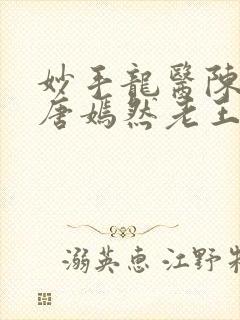 妙手龍醫陳
唐嫣然老王
溺英惠 江野牧